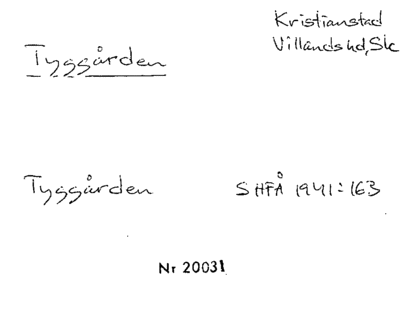 Kristianstad
Villands hd, Sk
Tyggården
Tyggården SHFÅ 1941:163
Nr 20031